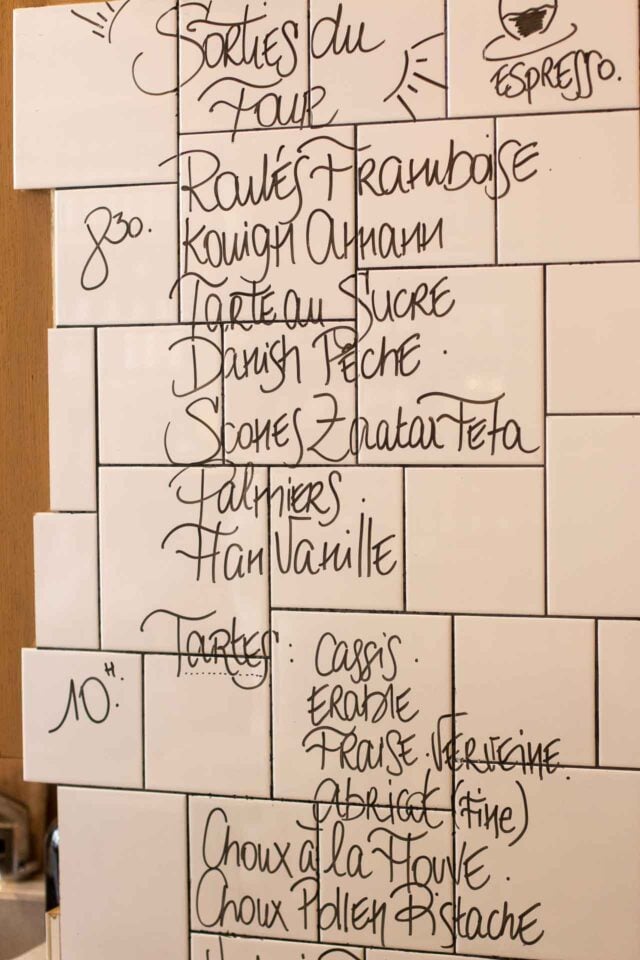 Sorties du
Four
ESPRESSO.
Roulés Framboise.
8 30.
Kouign Amann
Tarte au Sucre
Danish Pêche.
Scones Zaatar Feta
Palmiers.
Flan Vanille
Tartes: Cassis.
10H.
Erable
Fraise. Verveine.
Abricot (Fine)
Choux à la Flouve.
Choux Pollen Pistache